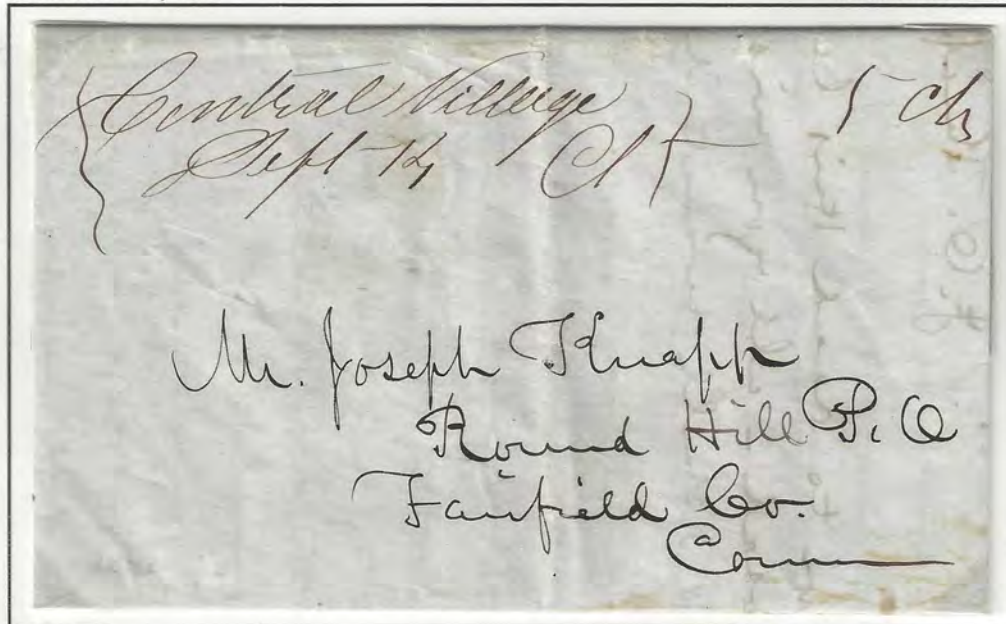 Central Village 5 cts
Sept 14 Ct
Mr. Joseph Knapp
Round Hill P. O
Fairfield Co.
Conn